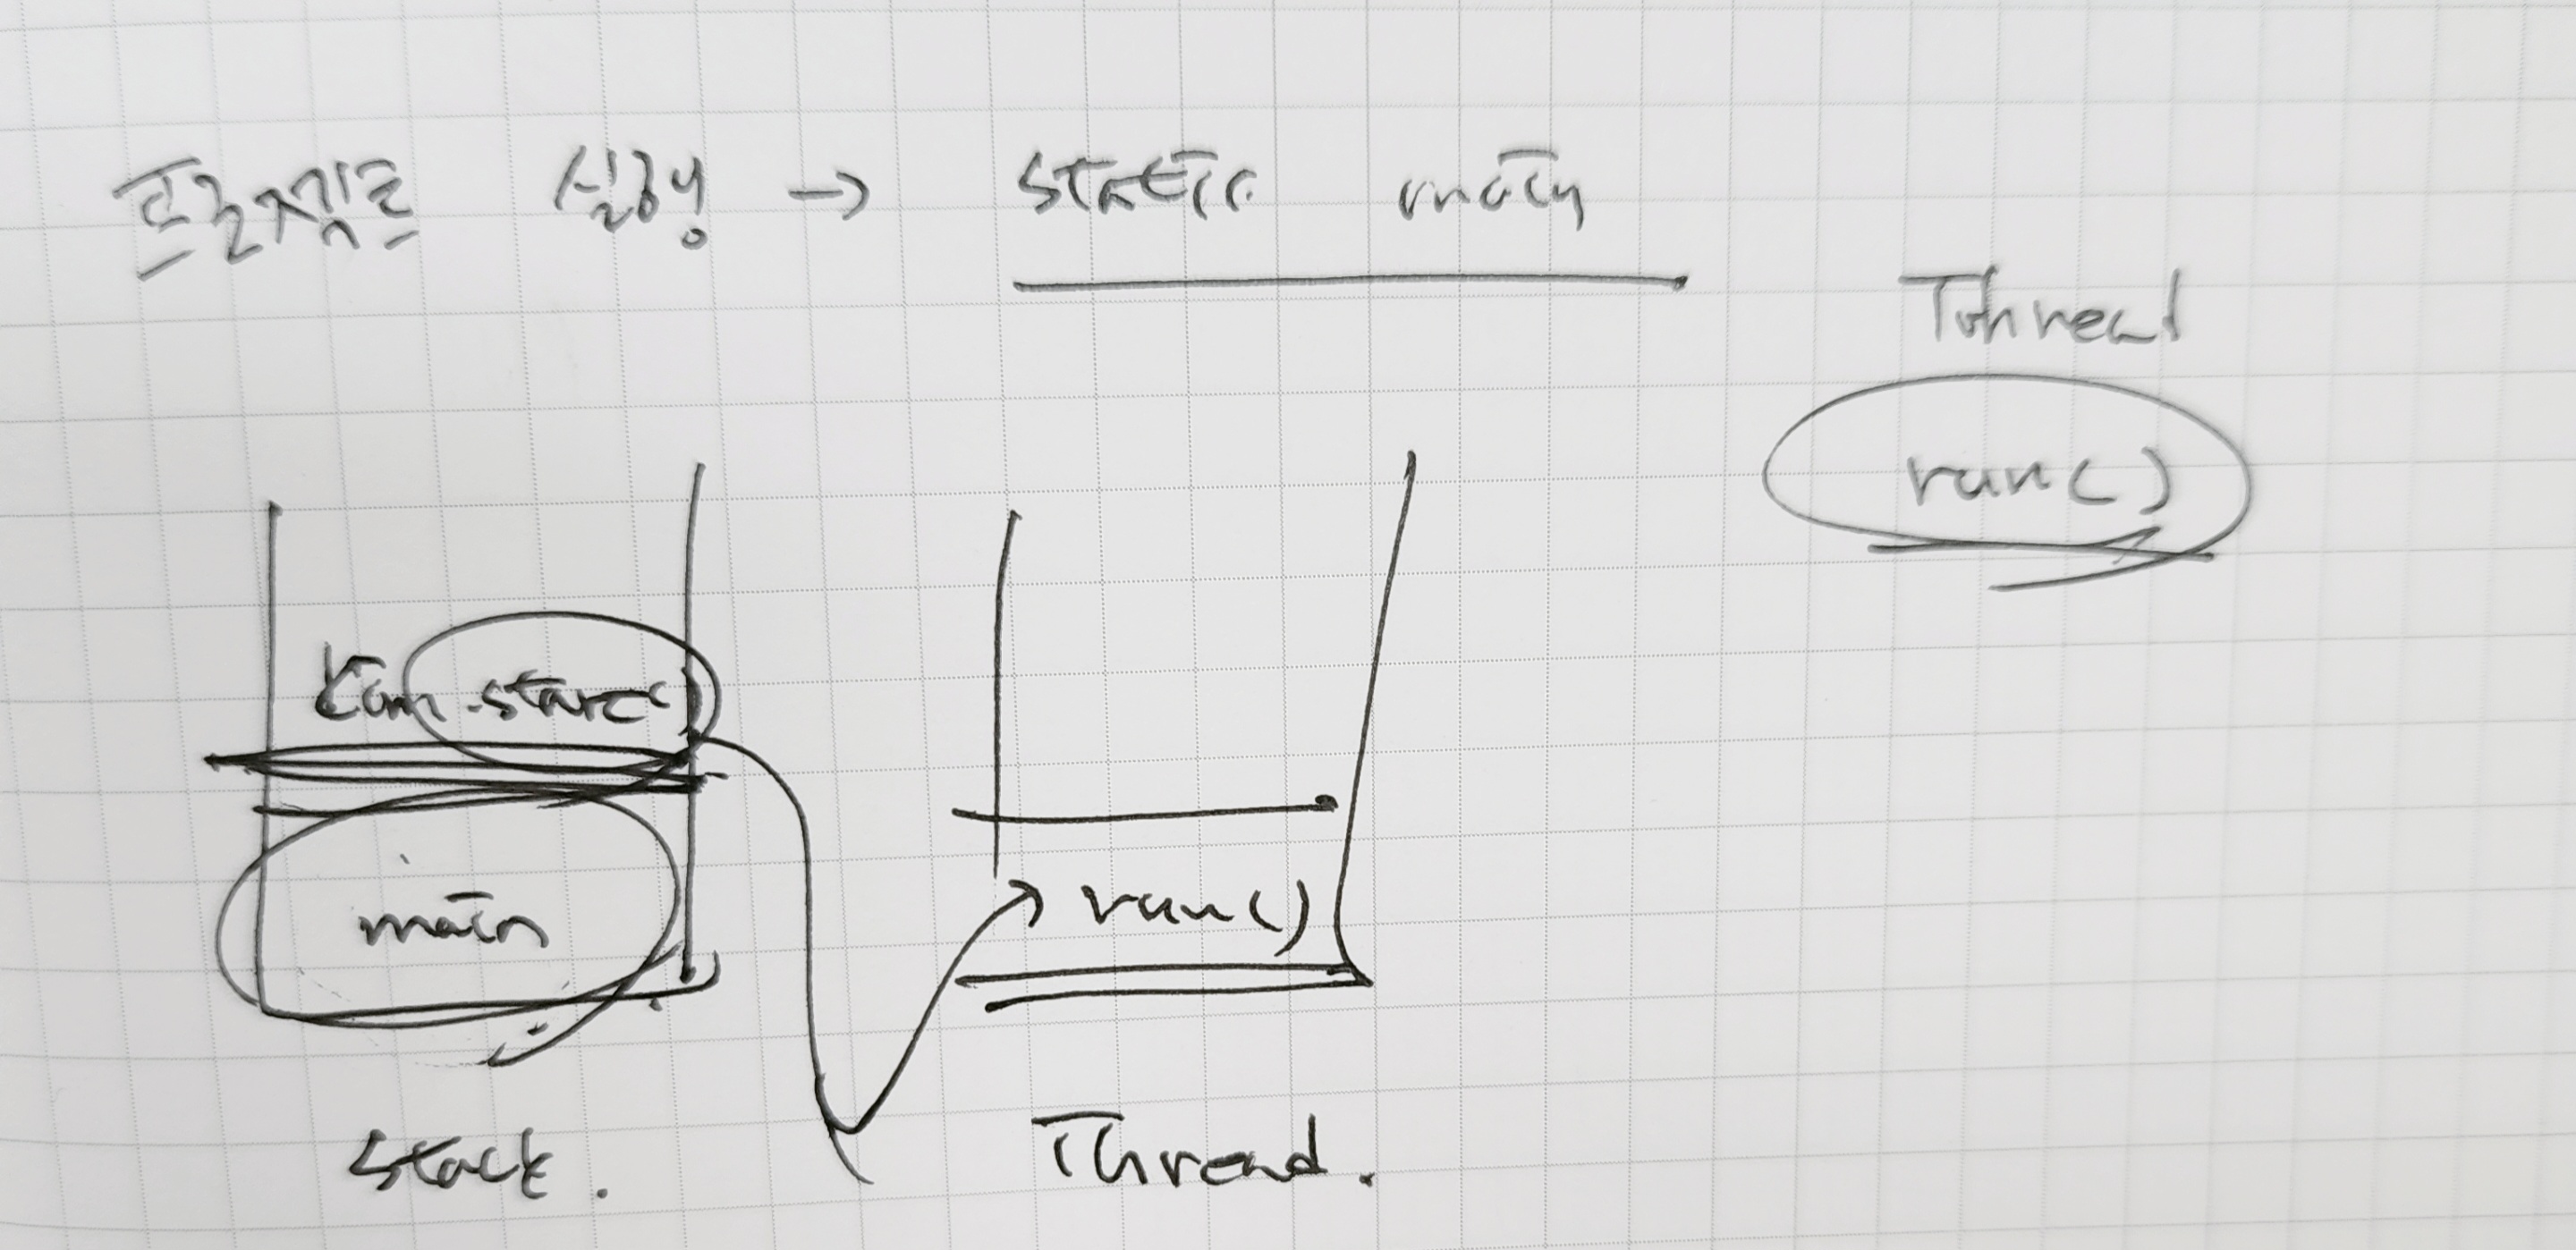 프로젝트 실행 → static main
Thread
run()
kam.start()
main
run()
Stack.
Thread.